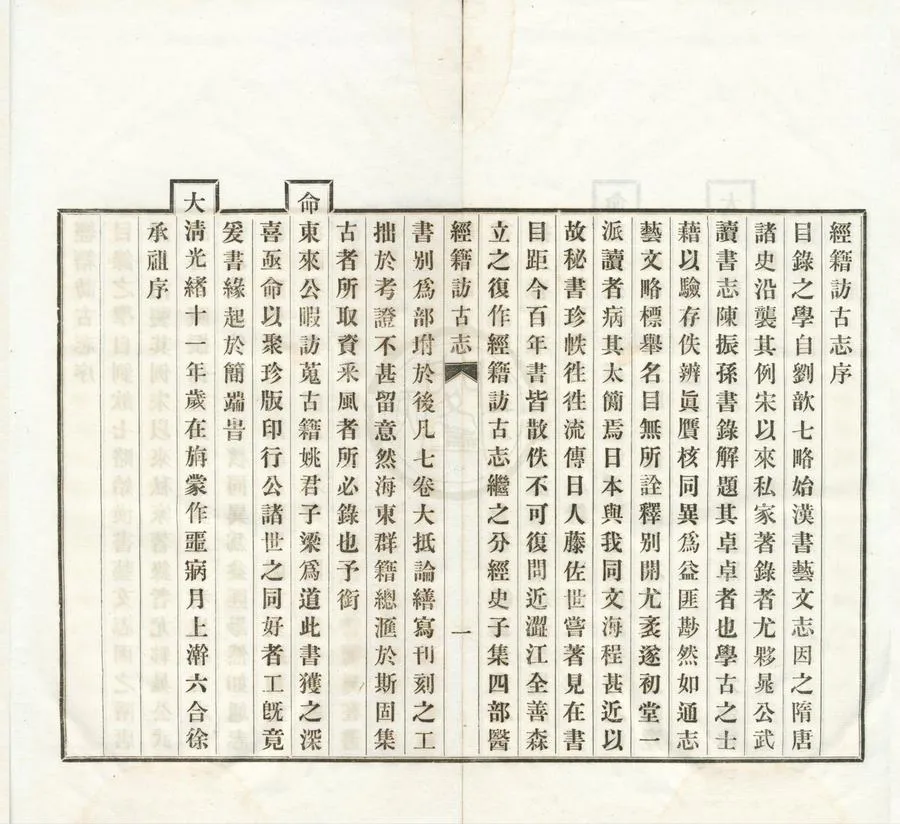 經籍訪古志序
目錄之學自劉歆七略始漢書藝文志因之隋唐
諸史沿襲其例宋以來私家著錄者尤夥晁公武
讀書志陳振孫書錄解題其卓卓者也學古之士
藉以驗存佚辨眞贗核同異爲益匪尠然如通志
藝文略標舉名目無所詮釋別開尤袤遂初堂一
派讀者病其太簡焉日本與我同文海程甚近以
故秘書珍帙徃徃流傳日人藤佐世嘗著見在書
目距今百年書皆散佚不可復問近澀江全善森
立之復作經籍訪古志繼之分經史子集四部醫
經籍訪古志 一
書別爲部坿於後凡七卷大抵論繕寫刊刻之工
拙於考證不甚留意然海東群籍總滙於斯固集
古者所取資釆風者所必錄也予銜
命東來公暇訪蒐古籍姚君子梁爲道此書獲之深
喜亟命以聚珍版印行公諸世之同好者工旣竟
爰書緣起於簡端旹
大清光緒十一年歲在旃蒙作噩寎月上澣六合徐
承祖序